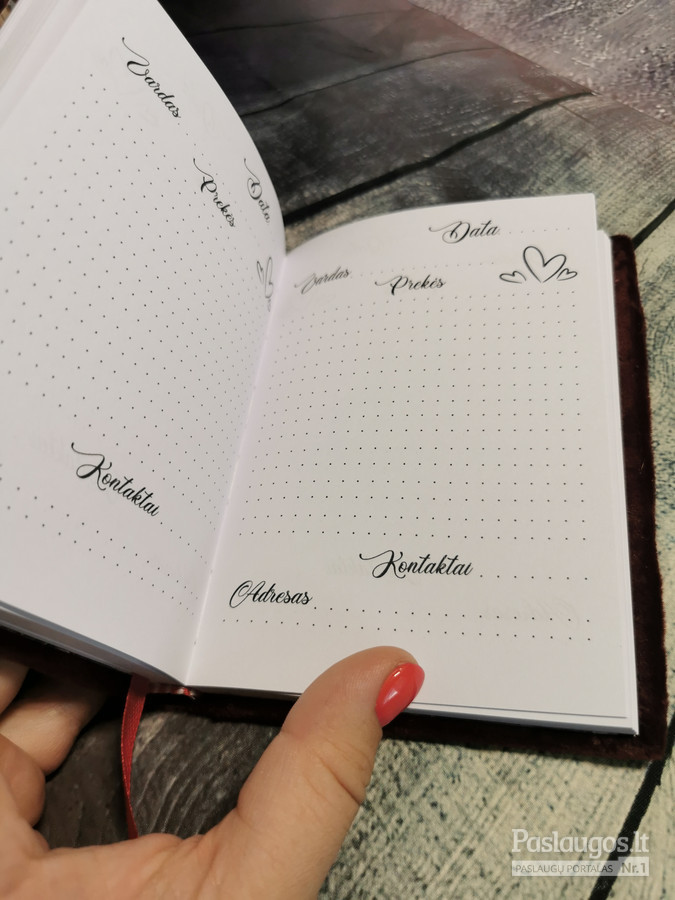 Vardas
Data
Prekės
Kontaktai
Data
Vardas
Prekės
Kontaktai
Adresas
Paslaugos.lt
PASLAUGŲ PORTALAS Nr.1